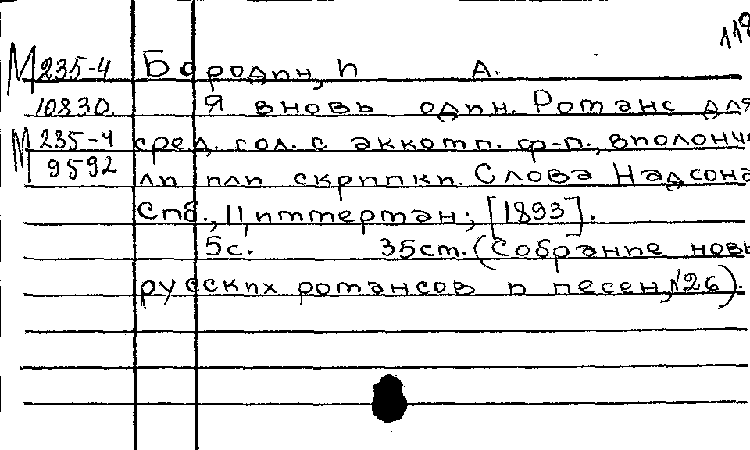 118
М 235-4 Бородин, И А.
10830. Я вновь один. Романс для
М 235-4 сред. гол. с аккомп. ф-п., виолонче
9592 ли или скрипки. Слова Надсона
Спб., Циммерман; [1893].
5с. 35см. (Собрание новы
русских романсов и песен, №26).